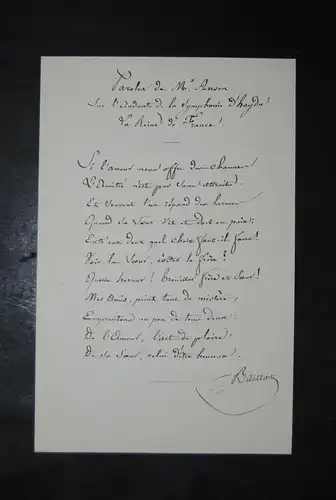 Paroles de Mr. Anson
Sur l'Andante de la Symphonie d'haydn
(La Reine de France)
Si l'amour nous offre des charmes
L'Amitié n'est pas sans attraits.
Et souvent l'un répand des larmes
Quand sa Sœur vit et dort en paix;
Entre eux deux quel choix faut-il faire?
Voir la Sœur, éviter le frère?
Quelle erreur! brouiller frère et Sœur!
Mes Amis, point tant de mistère,
Empruntons un peu de tous deux:
De l'Amour, l'art de plaire;
De sa Sœur, celui d'être heureux.
Baillot